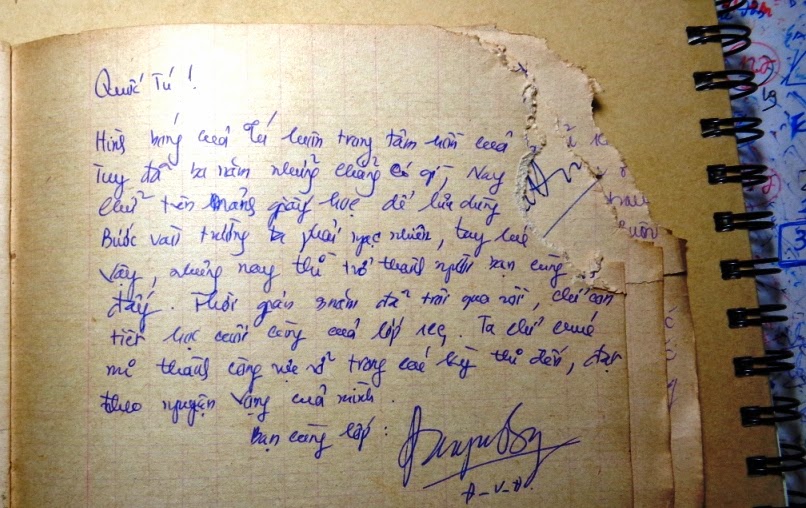 Quốc Tú !
Hình bóng của Tú luôn trong tâm hồn của
Tuy đã ba năm nhưng chẳng có gì, Nay
chỉ trên mảng giấy học để lưu dung
Bước vào trường ta phải ngạc nhiên, tuy
vậy, nhưng nay thì trở thành người bạn cùng
đấy. Thời gian 3 năm đã trôi qua rồi, chỉ còn
tiết học cuối cùng của lớp 12C. Ta chỉ chúc
mi thành công rực rỡ trong các kỳ thi đến, đạt
theo nguyện vọng của mình.
Bạn cùng lớp :